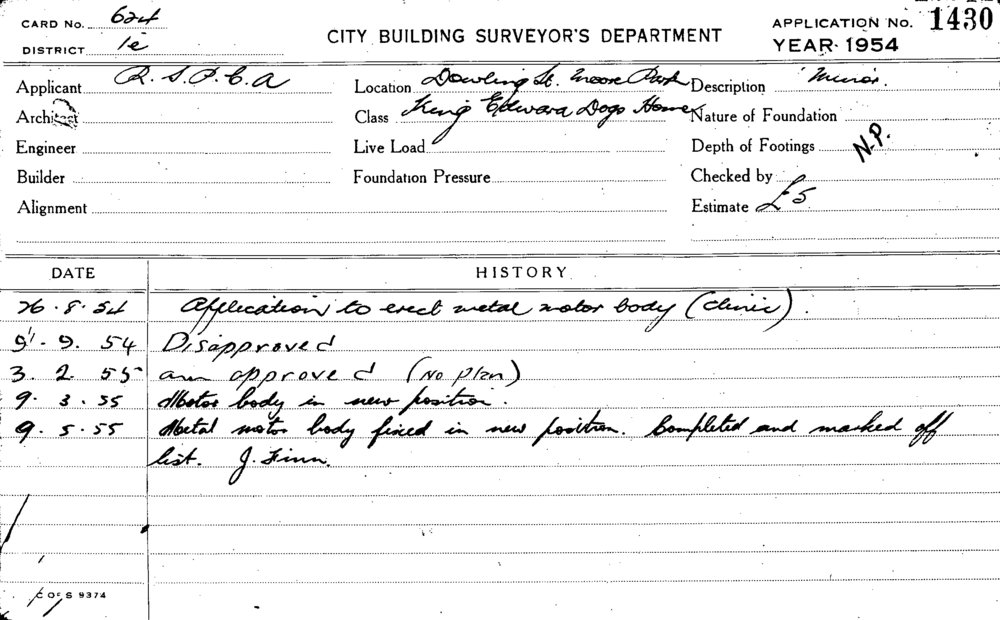 CARD No. 624
DISTRICT 1e
CITY BUILDING SURVEYOR'S DEPARTMENT
APPLICATION No. 1430
YEAR 1954
Applicant R. S. P. C. A
Location Dowling St. Moore Park
Description Minor
Architect
Class King Edward Dogs Home
Nature of Foundation
Engineer
Live Load
Depth of Footings N.P.
Builder
Foundation Pressure
Checked by
Alignment
Estimate £5
DATE HISTORY
26.8.54 Application to erect metal motor body (clinic).
9.9.54 Disapproved
3.2.55 approved (No Plan)
9.3.55 Motor body in new position.
9.5.55 Metal motor body fixed in new position. Completed and marked off
list. J. Finn.
C OF S 9374